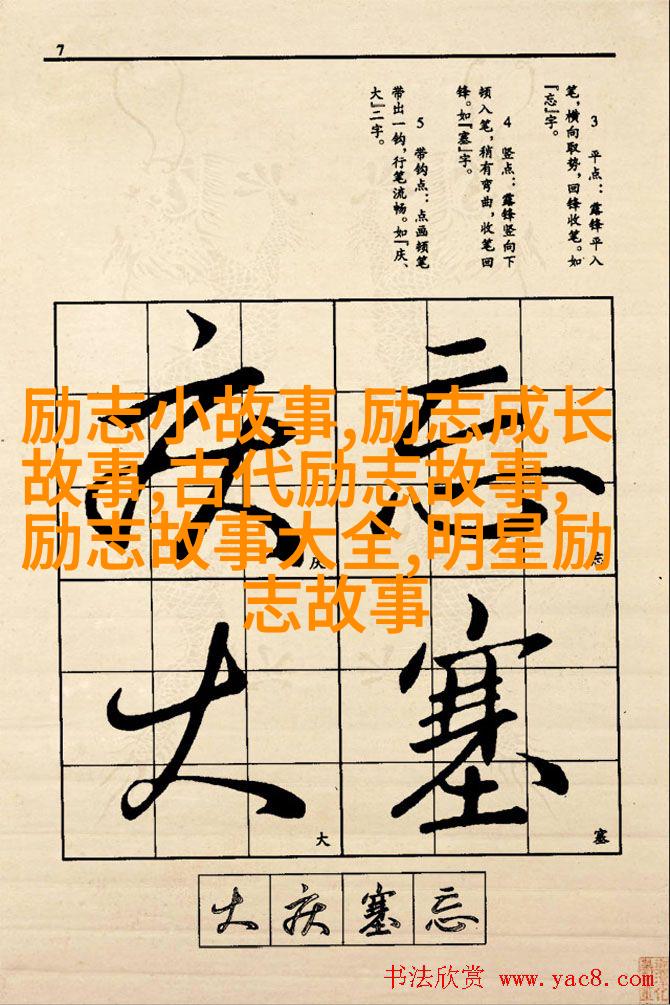 7
3 平点：露锋平入
笔，横向取势，回锋收笔。如
『忘』字。
4 竖点：露锋竖向下
顿入笔，稍有弯曲，收笔回
锋。如『塞』字。
5 带钩点：点画顿笔
带出一钩，行笔流畅。如『庆、
大』二字。
励志小故事,励志成长
故事,古代励志故事,
励志故事大全,明星励
志故事
忘
忘
塞
塞
庆
庆
大
大
大 庆 塞 忘
书法欣赏 www.yac8.com